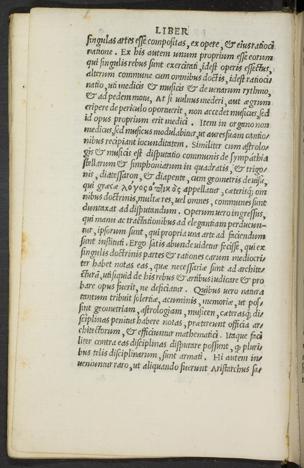 LIBER
singulas artes esse compositas, ex opere, & eius ratioci
ratione. Ex his autem unum proprium esse eorum
qui singulis rebus sunt exercitati, idest operis effectus,
alterum commune cum omnibus doctis, idest ratioci
natio, uti medicis & musicis & de uenarum rythmo,
& ad pedem motu, At si uulnus mederi, aut ægrum
eripere de periculo oportuerit, non accedet musicus, sed
id opus proprium erit medici. Item in organo non
medicus, sed musicus modulabitur, ut aures suam cantio
nibus recipiant iucunditatem. Similiter cum astrolo
gis & musicis est disputatio communis de sympathia
stellarum & simphoniarum in quadratis, & trigo
nis, diatessaron, & diapente, cum geometris de uisu,
qui græce λόγος ὀπτικὸς appellatur, cæterisq; om
nibus doctrinis, multæ res, uel omnes, communes sunt
duntaxat ad disputandum. Operum uero ingressus,
qui manu ac tractationibus ad elegantiam perducun
tur, ipsorum sunt, qui propria una arte ad faciendum
sunt instituti. Ergo satis abunde uidetur fecisse, qui ex
singulis doctrinis partes & rationes earum mediocri
ter habet notas eas, quæ necessariæ sunt ad architec
turā, uti siquid de his rebus & artibus iudicare & pro
bare opus fuerit, ne deficiatur. Quibus uero natura
tantum tribuit solertiæ, acuminis, memoriæ, ut pos
sint geometriam, astrologiam, musicem, cæterasq; di
sciplinas penitus habere notas, prætereunt officia ar
chitectorum, & efficiuntur mathematici. Itaque faci
liter contra eas disciplinas disputare possunt, q̃ pluri
bus telis disciplinarum, sunt armati. Hi autem in
ueniuntur raro, ut aliquando fuerunt Aristarchus sa